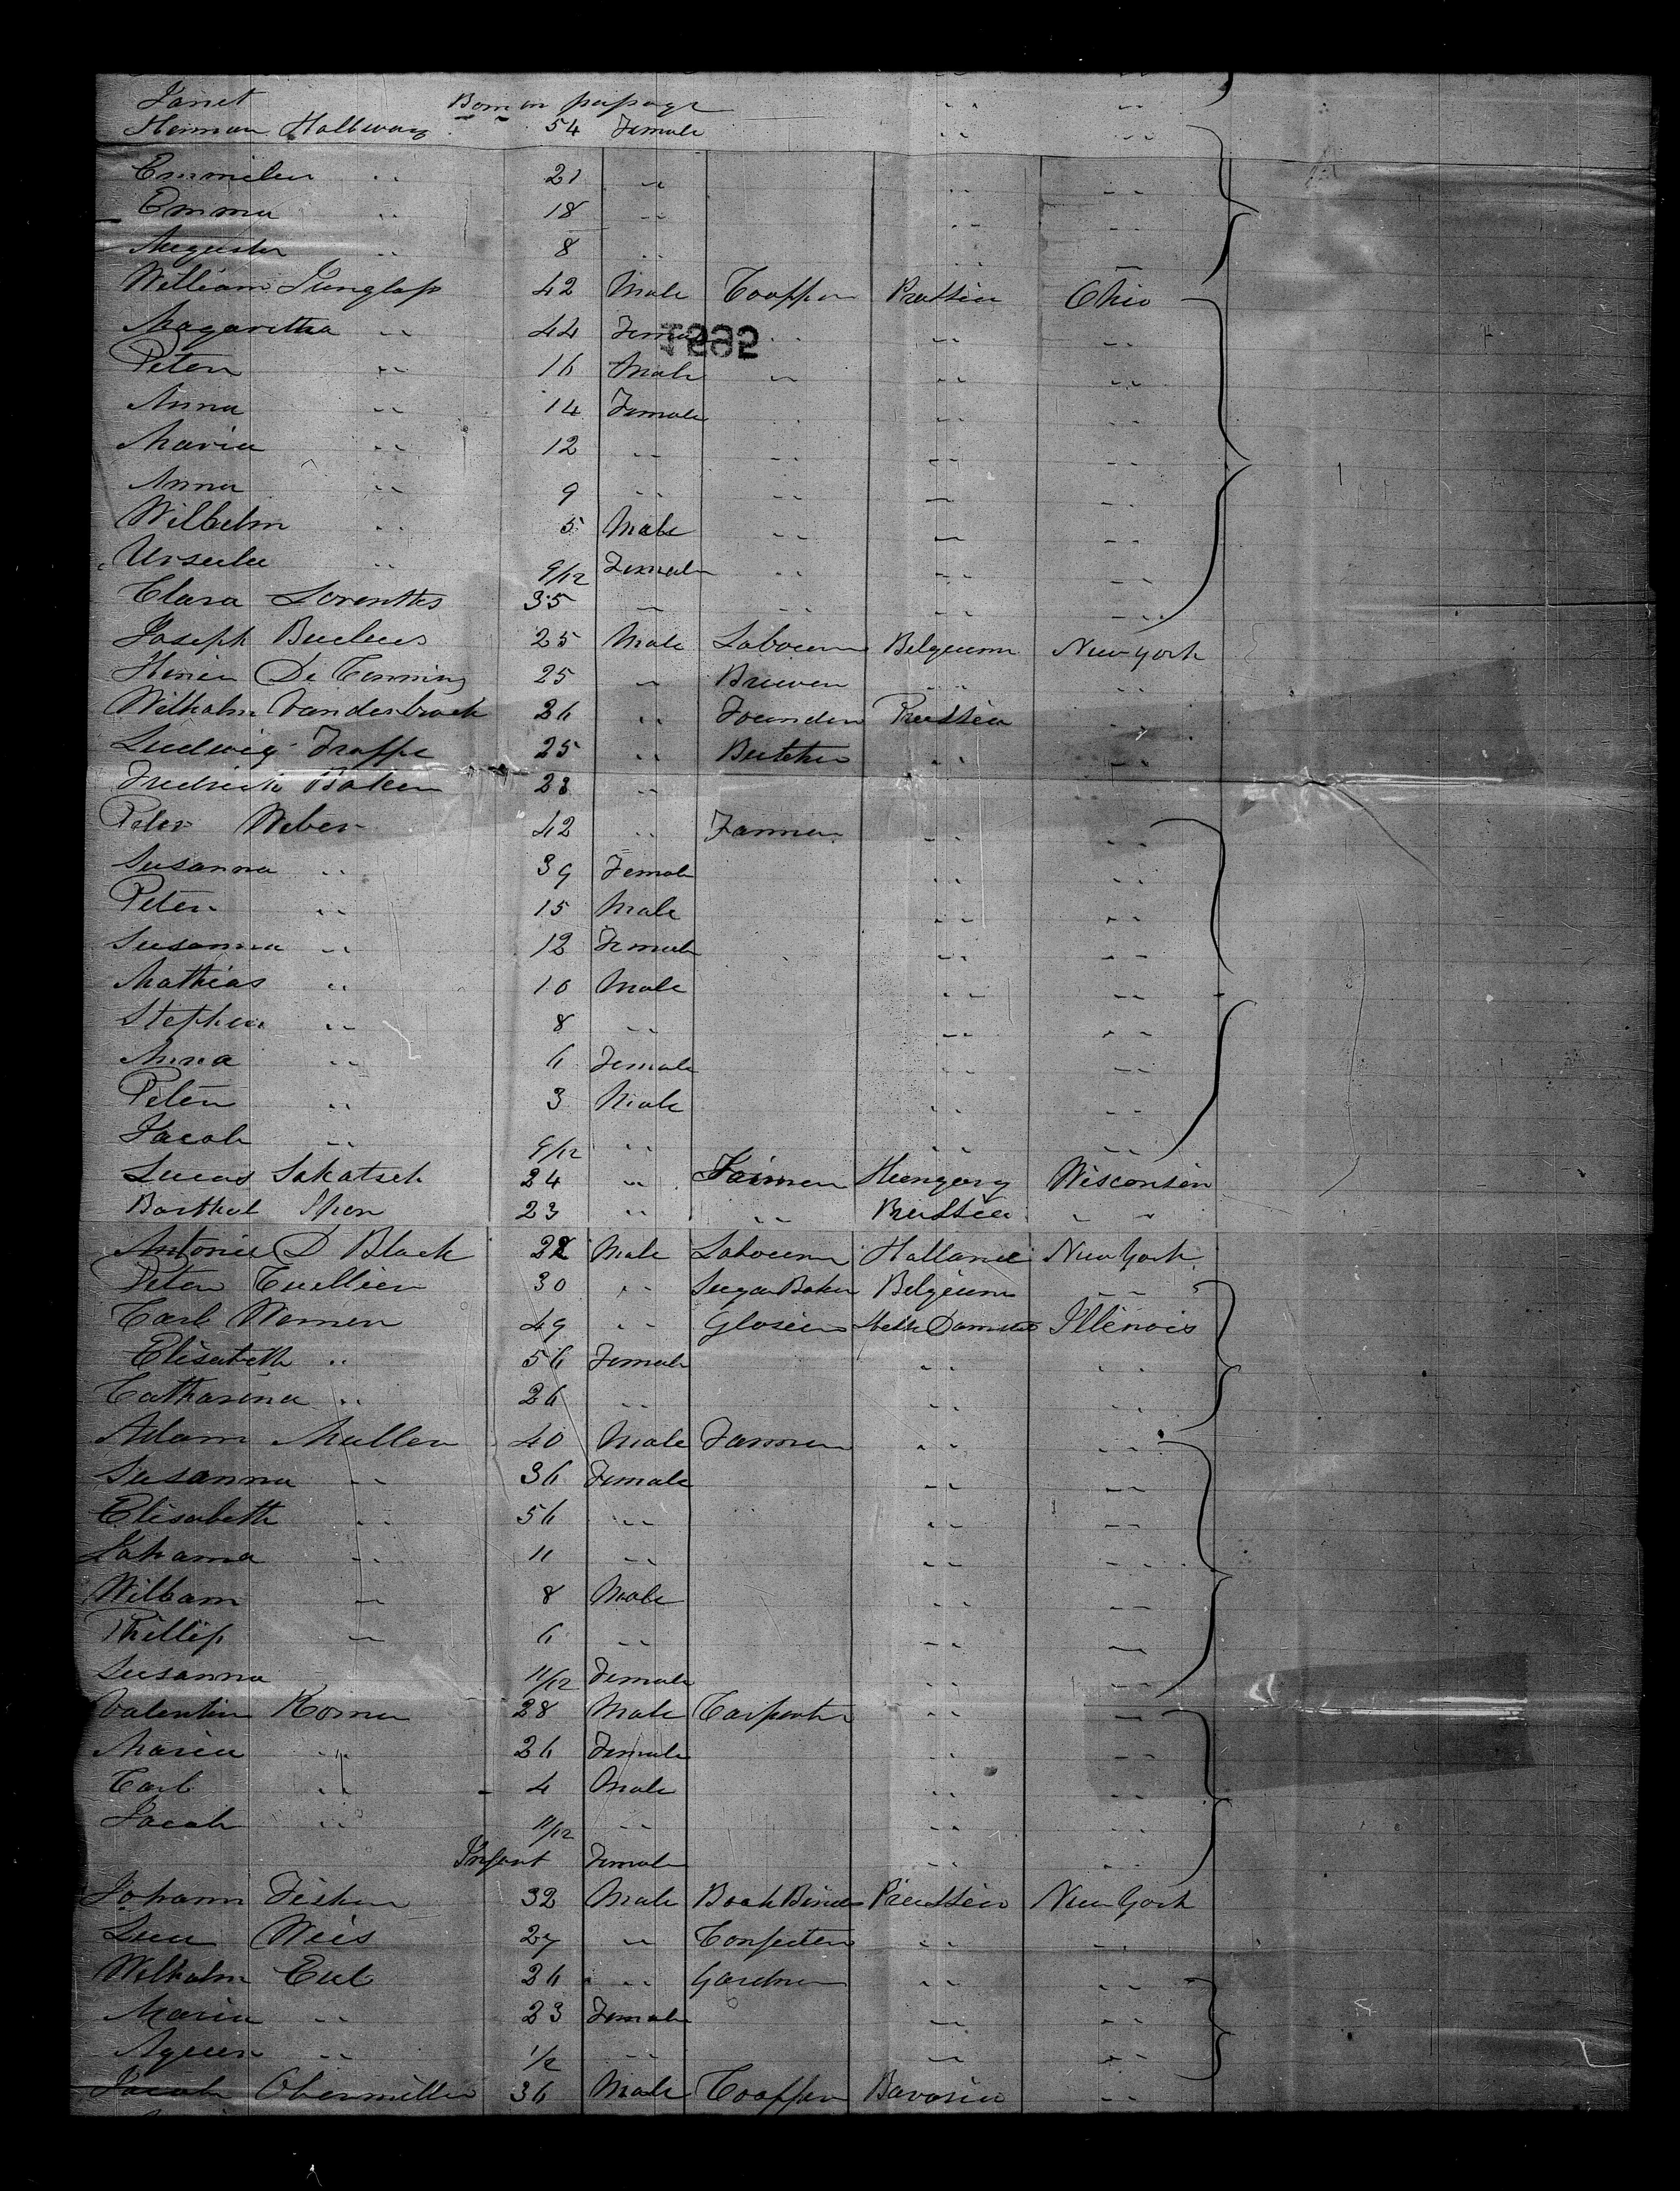 Janet Born on passage " "
Herman Hallway 54 Female " "
Emmilea " 21 " " "
Emma " 18 " " "
Augusta " 8 " " "
William Junglass 42 Male Cooper Prussia Ohio
Magaretha " 44 Female " " "
Peter " 16 Male " " "
Anna " 14 Female " " "
Maria " 12 " " " "
Anna " 9 " " " "
Wilhelm " 5 Male " " "
Ursula " 9/12 Female " " "
Clara Lorenttes 35 " " " "
Joseph 25 Male Labourer Belgium New York
Henri De 25 " Brewer " "
Wilhalm Vanderbroek 26 " Founder Prussia "
Ludwig Trappe 25 " Butcher " "
Fredrich Baker 23 "
Peter Weber 42 " Farmer " "
Susanna " 39 Female " "
Peter " 15 Male " "
Susanna " 12 Female " "
Mathias " 10 Male " "
Stephen " 8 " " "
Anna " 6 Female " "
Peter " 3 Male " "
Jacob " 9/12 " " "
Lucas Sakatsch 24 " Farmer Hungary Wisconsin
Barthol Spon 23 " " Prussia "
Antonie D Black 22 Male Labourer Holland New York
Peter 30 " Sugar Baker Belgium "
Carl Werner 49 " Glosier Hesse Darmstad Illinois
Elisabeth " 56 Female " "
Catharina " 26 " " "
Adam Muller 40 Male Farmer " "
Susanna " 36 Female " "
Elisabeth " 56 " " "
Johanna " 11 " " "
William " 8 Male " "
Phillip " 6 " " "
Susanna 11/12 Female " "
Valentin Korner 28 Male Carpenter " "
Maria " 26 Female " "
Carl " 4 Male " "
Jacob " 11/12 " " "
Infant Female " "
Johann Fisher 32 Male Book Binder Prussia New York
Weis 27 " Confecter " "
Wilhalm Eul 26 " Gardner " "
Maria " 23 Female " "
" 1/2 " " "
Jacob Obermiller 36 Male Cooper Bavaria "